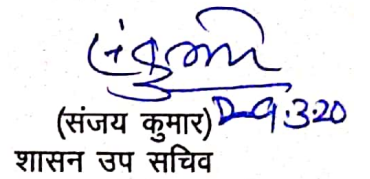 (संजय कुमार) 9.3.20
शासन उप सचिव